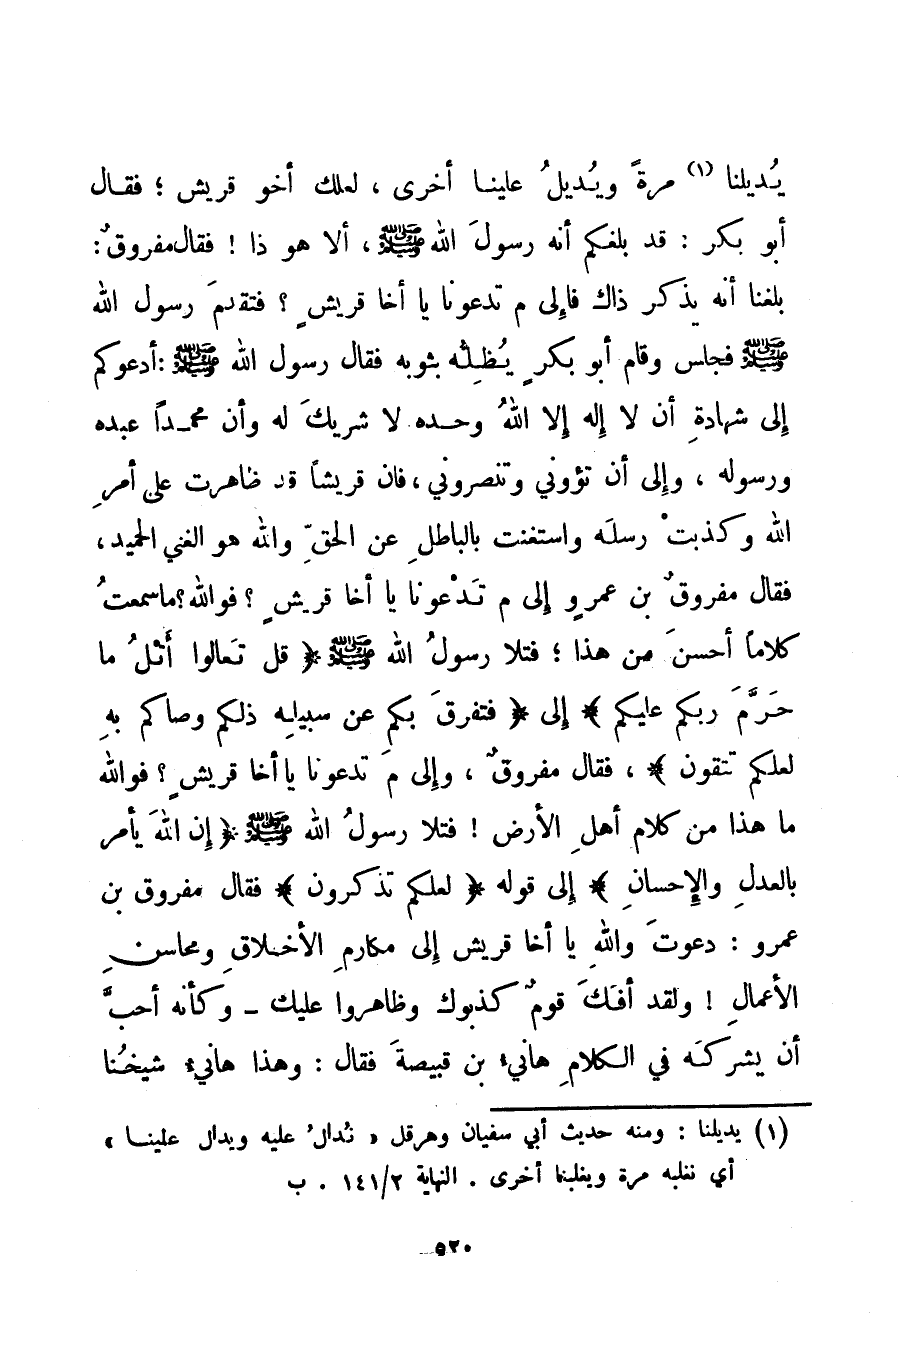 يُديلنا (١) مرةً ويُديلُ علينا أخرى ، لعلك أخو قريش ؛ فقال
أبو بكر : قد بلغكم أنه رسولَ الله ﷺ ، ألا هو ذا ! فقال مفروقٌ :
بلغنا أنه يذكر ذاك فإلى م تدعونا يا أخا قريشٍ ؟ فتقدمَ رسول الله
ﷺ فجلس وقام أبو بكرٍ يُظِلُّه بثوبه فقال رسول الله ﷺ : أدعوكم
إلى شهادةِ أن لا إله إلا اللهُ وحده لا شريكَ له وأن محمداً عبده
ورسوله ، وإلى أن تؤوني وتنصروني ، فان قريشاً قد ظاهرت على أمرِ
الله وكذبتْ رسلَه واستغنت بالباطلِ عن الحقِّ والله هو الغني الحميد ،
فقال مفروقٌ بن عمروٍ إلى م تَدْعونا يا أخا قريشٍ ؟ فوالله ؟ ما سمعتُ
كلاماً أحسنَ من هذا ؛ فتلا رسولُ الله ﷺ ﴿ قل تَعالوا أَتْلُ ما
حَرَّمَ ربكم عليكم ﴾ إلى ﴿ فتفرقَ بكم عن سبيله ذلكم وصاكم بهِ
لعلكم تتقون ﴾ ، فقال مفروقٌ ، وإلى مَ تدعونا يا أخا قريشٍ ؟ فوالله
ما هذا من كلام أهلِ الأرض ! فتلا رسولُ الله ﷺ ﴿ إن اللهَ يأمر
بالعدلِ والإِحسانِ ﴾ إلى قوله ﴿ لعلكم تذكرون ﴾ فقال مفروق بن
عمرو : دعوتَ واللهِ يا أخا قريش إلى مكارمِ الأخلاقِ ومحاسنِ
الأعمالِ ! ولقد أفَكَ قومٌ كذبوك وظاهروا عليك - وكأنه أحبَّ
أن يشركَه في الكلامِ هانيء بن قبيصةَ فقال : وهذا هانيء شيخُنا
(١) يديلنا : ومنه حديث أبي سفيان وهرقل « نُدالُ عليه ويدال علينا »
أي نغلبه مرة ويغلبنا أخرى . النهاية ١٤١/٢ . ب
٥٢٠